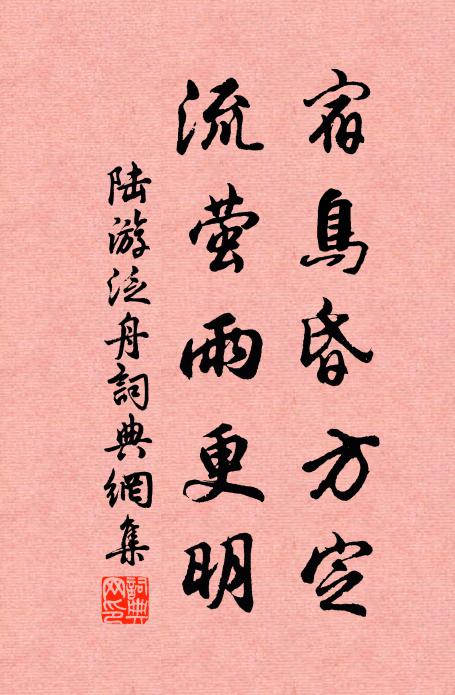 宿鳥昏方定
流萤雨更明
陆游泛舟詞典網集
詞典網印